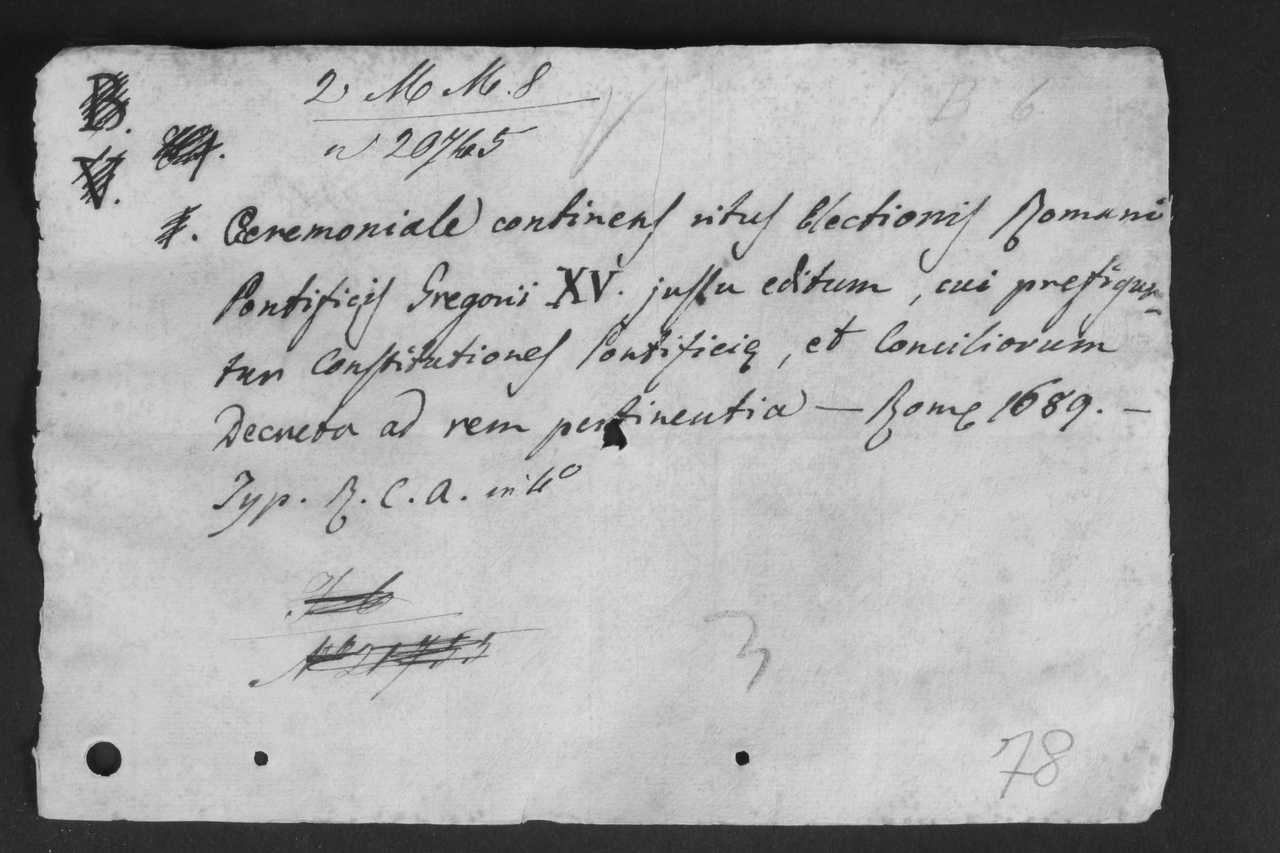 B.
V.
2 M M. 8
B 6
Ceremoniale continens ritus Electionis Romani
Pontificis Gregorii XV. jussu editum, cui prefigun-
tur Constitutiones Pontificię, et Conciliorum
Decreta ad rem pertinentia — Romę 1689. —
Typ. R. C. A. in 4o
3
78